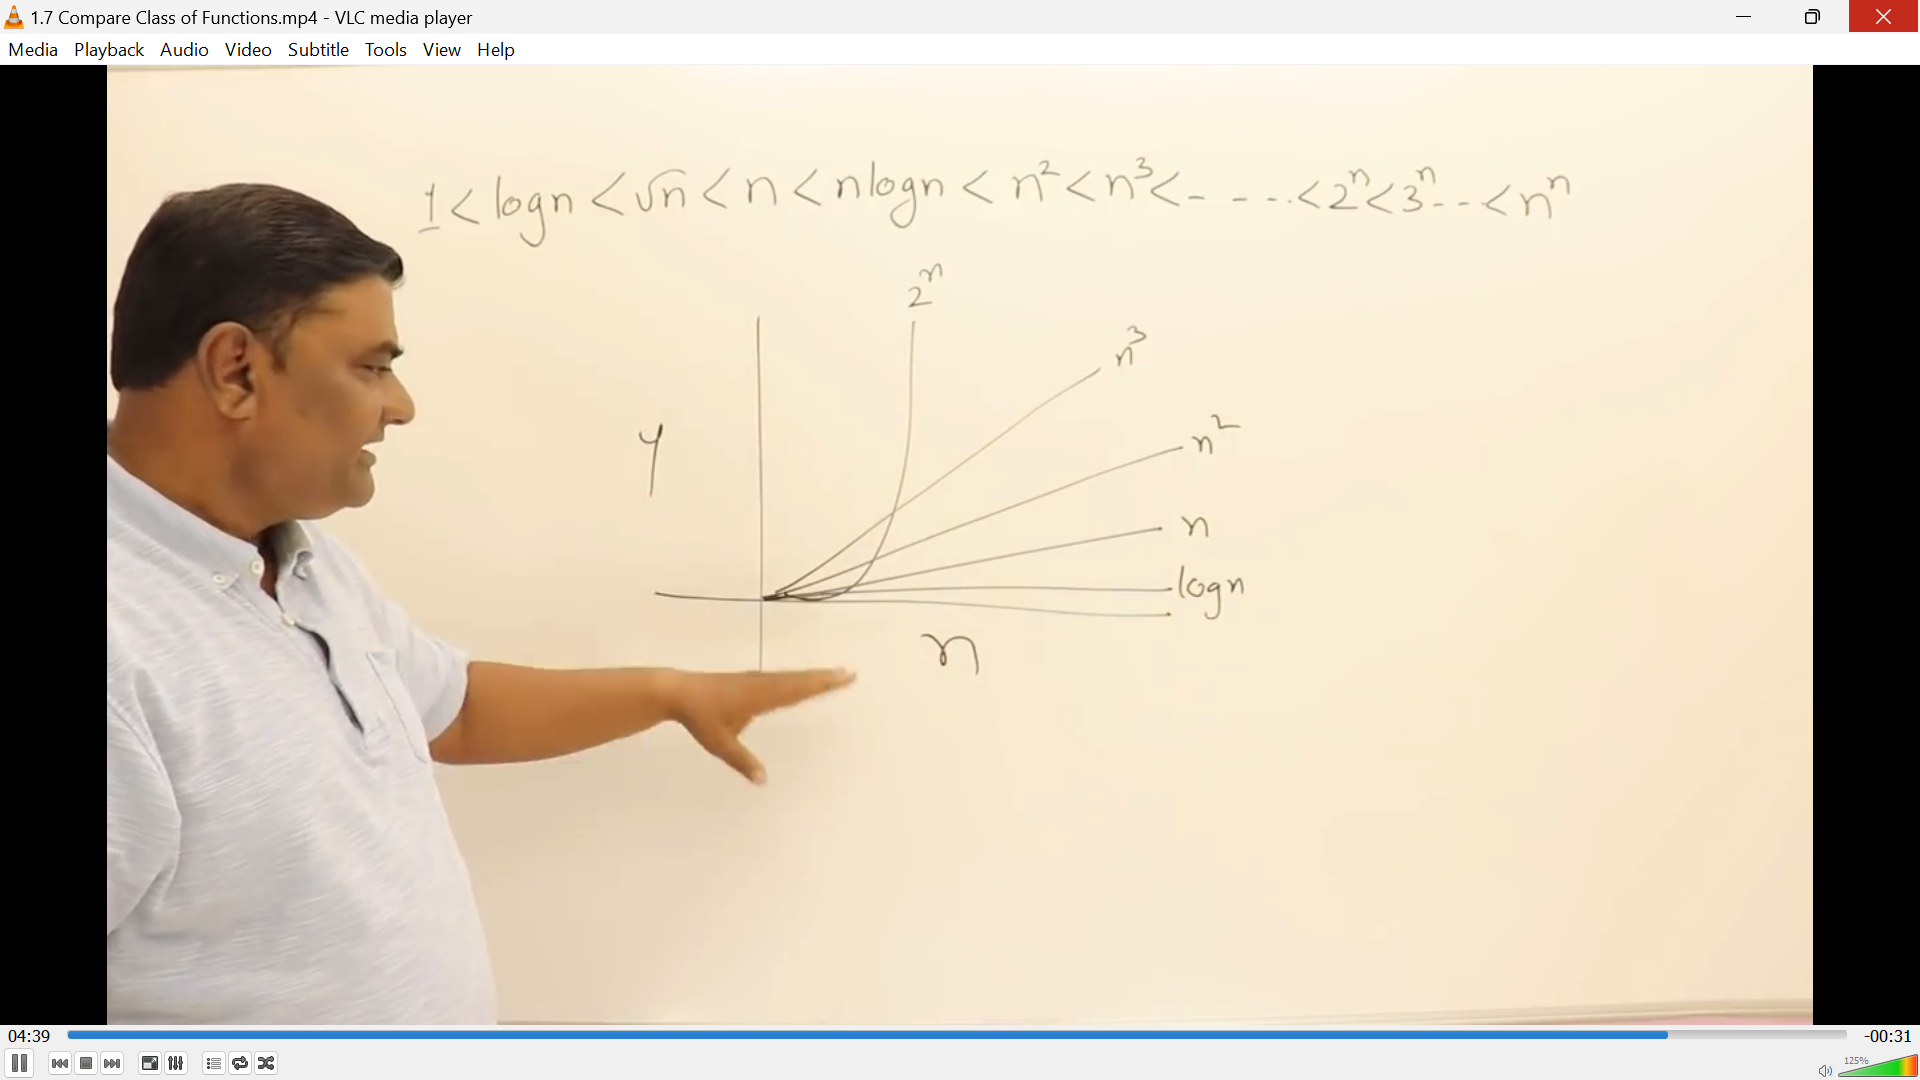 1.7 Compare Class of Functions.mp4 - VLC media player
Media Playback Audio Video Subtitle Tools View Help
1 < logn < √n < n < nlogn < n² < n³ < - - - .. < 2ⁿ < 3ⁿ - - < nⁿ
2ⁿ
n³
y
n²
n
logn
n
04:39 -00:31
125%